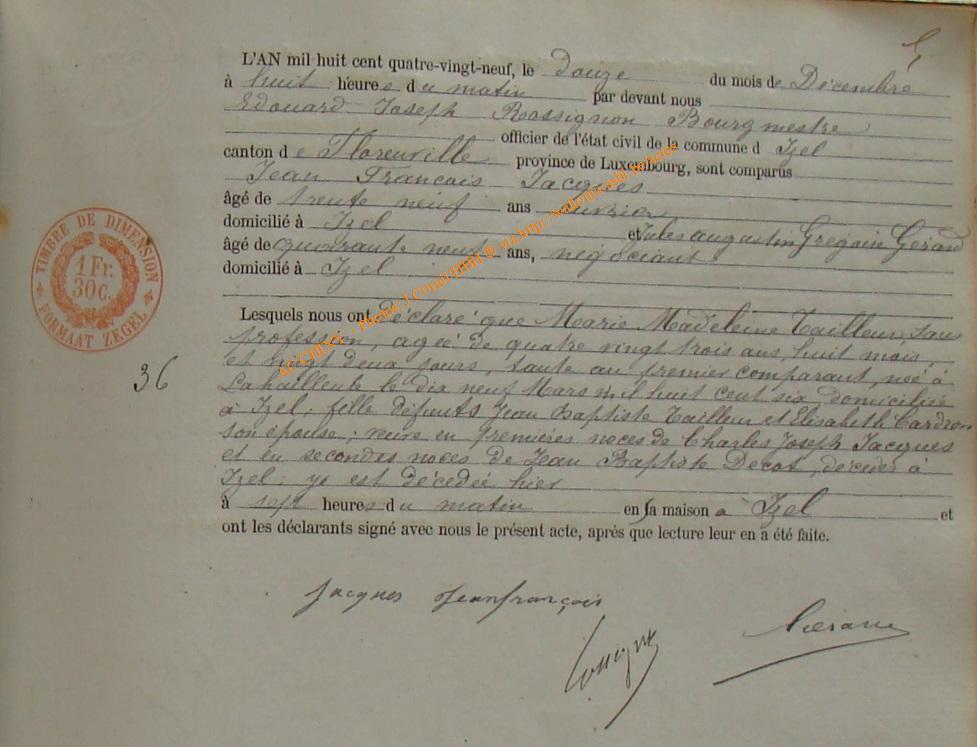 L'AN mil huit cent quatre-vingt-neuf, le douze du mois de Décembre
à huit heures du matin par devant nous
Edouard Joseph Rossignon Bourgmestre
officier de l'état civil de la commune d Izel
canton de Florenville province de Luxembourg, sont comparus
Jean Francois Jacques
âgé de trente neuf ans ouvrier
domicilié à Izel et Jules augustin Gregoire Gérard
âgé de quarante neuf ans, négociant
domicilié à Izel
TIMBRE DE DIMENSION
1 Fr.
30 c.
FORMAAT ZEGEL
Lesquels nous ont déclaré que Marie Madeleine Tailleur, sans
profession, agée de quatre vingt trois ans, huit mois
et vingt deux jours, tante au premier comparant, née à
36
Lahailleule le dix neuf Mars mil huit cent six, domiciliée
à Izel; fille défunts Jean Baptiste Tailleur et Elisabeth Cardron
son épouse; veuve en premières noces de Charles Joseph Jacques
et en secondes noces de Jean Baptiste Decot, décédés à
Izel: y est décédée hier
à sept heures du matin en sa maison à Izel et
ont les déclarants signé avec nous le présent acte, après que lecture leur en a été faite.
Jacques Jeanfrançois
Gérard